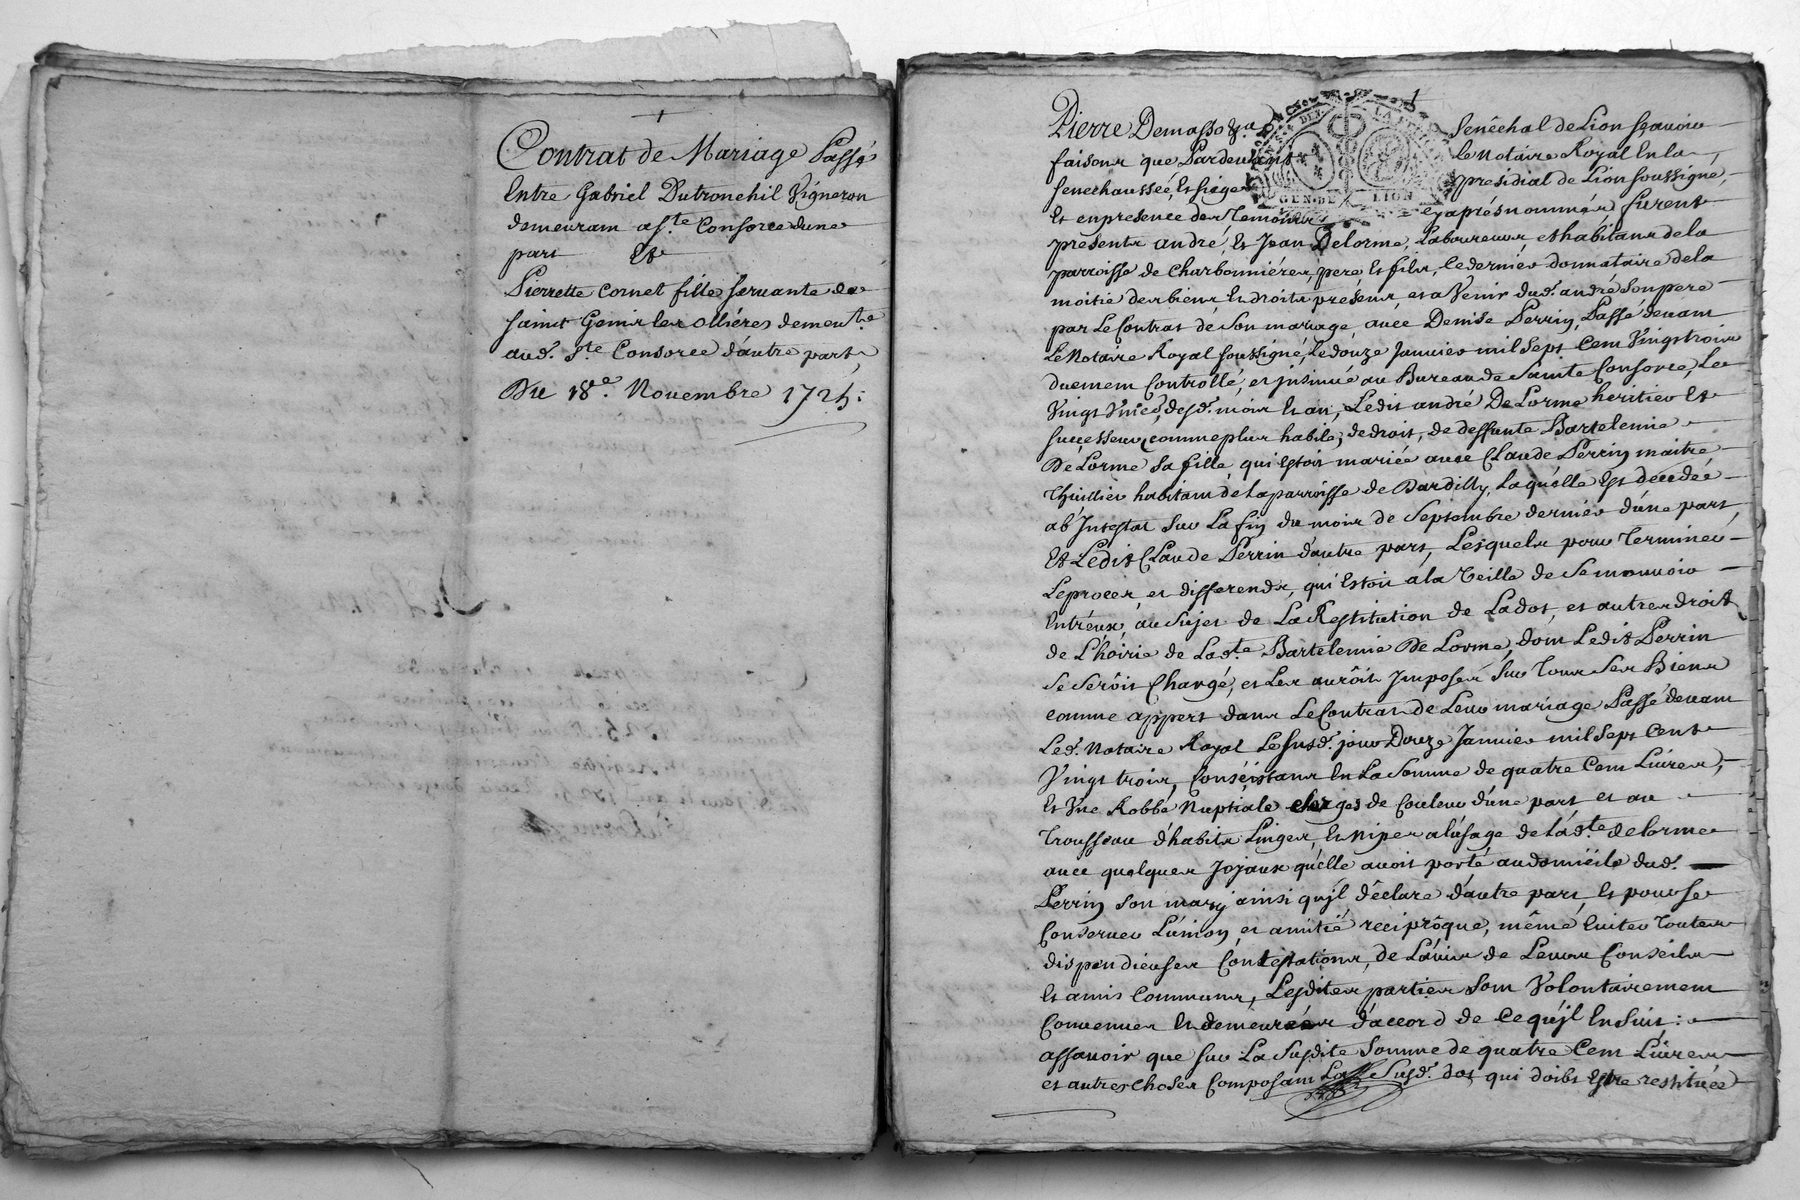 Contrat de Mariage Passé
Entre Gabriel Dutronchil Vigneron
demeuram as.te Consorce dune
part Et
Pierrette Cornet fille servante de
saint Genis les olliéres demeu.te
aud. s.te Consorce d'autre part,
Du 18.e Novembre 1725:
1
Pierre Demasso &.a Senêchal de Lion sçavoir
faisons que Pardevant Le Notaire Royal En la
Senechausseé, Et siege presidial de Lion soussigné,
Et en presence des Temoins cy aprés nommés furent
presents andré Et Jean Delorme, Laboureurs et habitans de la
parroisse de Charbonniéres, pere Et fils, le dernier donnataire de la
moitié des biens Et droits présens, et a Venir dud. andré Son pere
par Le Contrat de Son mariage, avec Denise Perrin, Passé devam
Le Notaire Royal soussigné, Le douze Janvier mil Sept Cem Vingt trois
duemem Controllé, et jnsinué au Bureau de Sainte Consorce, Le
Vingt du.d. mois Et an, Ledit andré De Lorme heritier Et
successeur, comme plus habile, de droit, de deffunte Bartelemie
De Lorme Sa fille, qui Estoit mariée avec Claude Perrin maitre
Thuillier habitam de La parroisse de Dardilly, Laquelle Est decedée
ab Jntestat Sur La fin du mois de Septembre dernier d'une part,
Et Ledit Claude Perrin d'autre part, Lesquels pour Terminer
Le procez, et differends, qu'Estoit a la Veille de Se mouvoir
Entréux, au Sujet de La Restitution de La dot, et autres droits
de L'hoirie de Lad.te Bartelemie De Lorme, dom Ledit Perrin
Se Serôit Chargé, et Les aurôit Jmposés Sur Tous Ses Biens
comme appert dans Le Contrat de Leur mariage Passé devam
Led. Notaire Royal Le Susd. jour Douze Janvier mil Sept Cent
Vingt trois, Conséistant En La Somme de quatre Cem Livres,
Et Vne Robbe Nuptiale de Couleur d'une part, et au
Trousseau d'habits Linges, Et Nipes a L'usage de Lad.te delorme
avec quelques Joyaux qu'elle avoit porté au domicile dud.
Perrin Son mary ainsi qu'jl déclare d'autre part, Et pour Se
Conserver L'union, et amitié reciprôque, même Eviter Toutes
dispendieuses Contestations, de L'avis de Leurs Conseils
Et amis Communs, Lesdites parties Som Volontairemem
Convenues Et demeurées d'accord de Ce qu'jl Ensuit:
assavoir que sur La Susdite Somme de quatre Cem Livres
et autres Choses Composam La Susd. dot, qui doibt Estre restituée